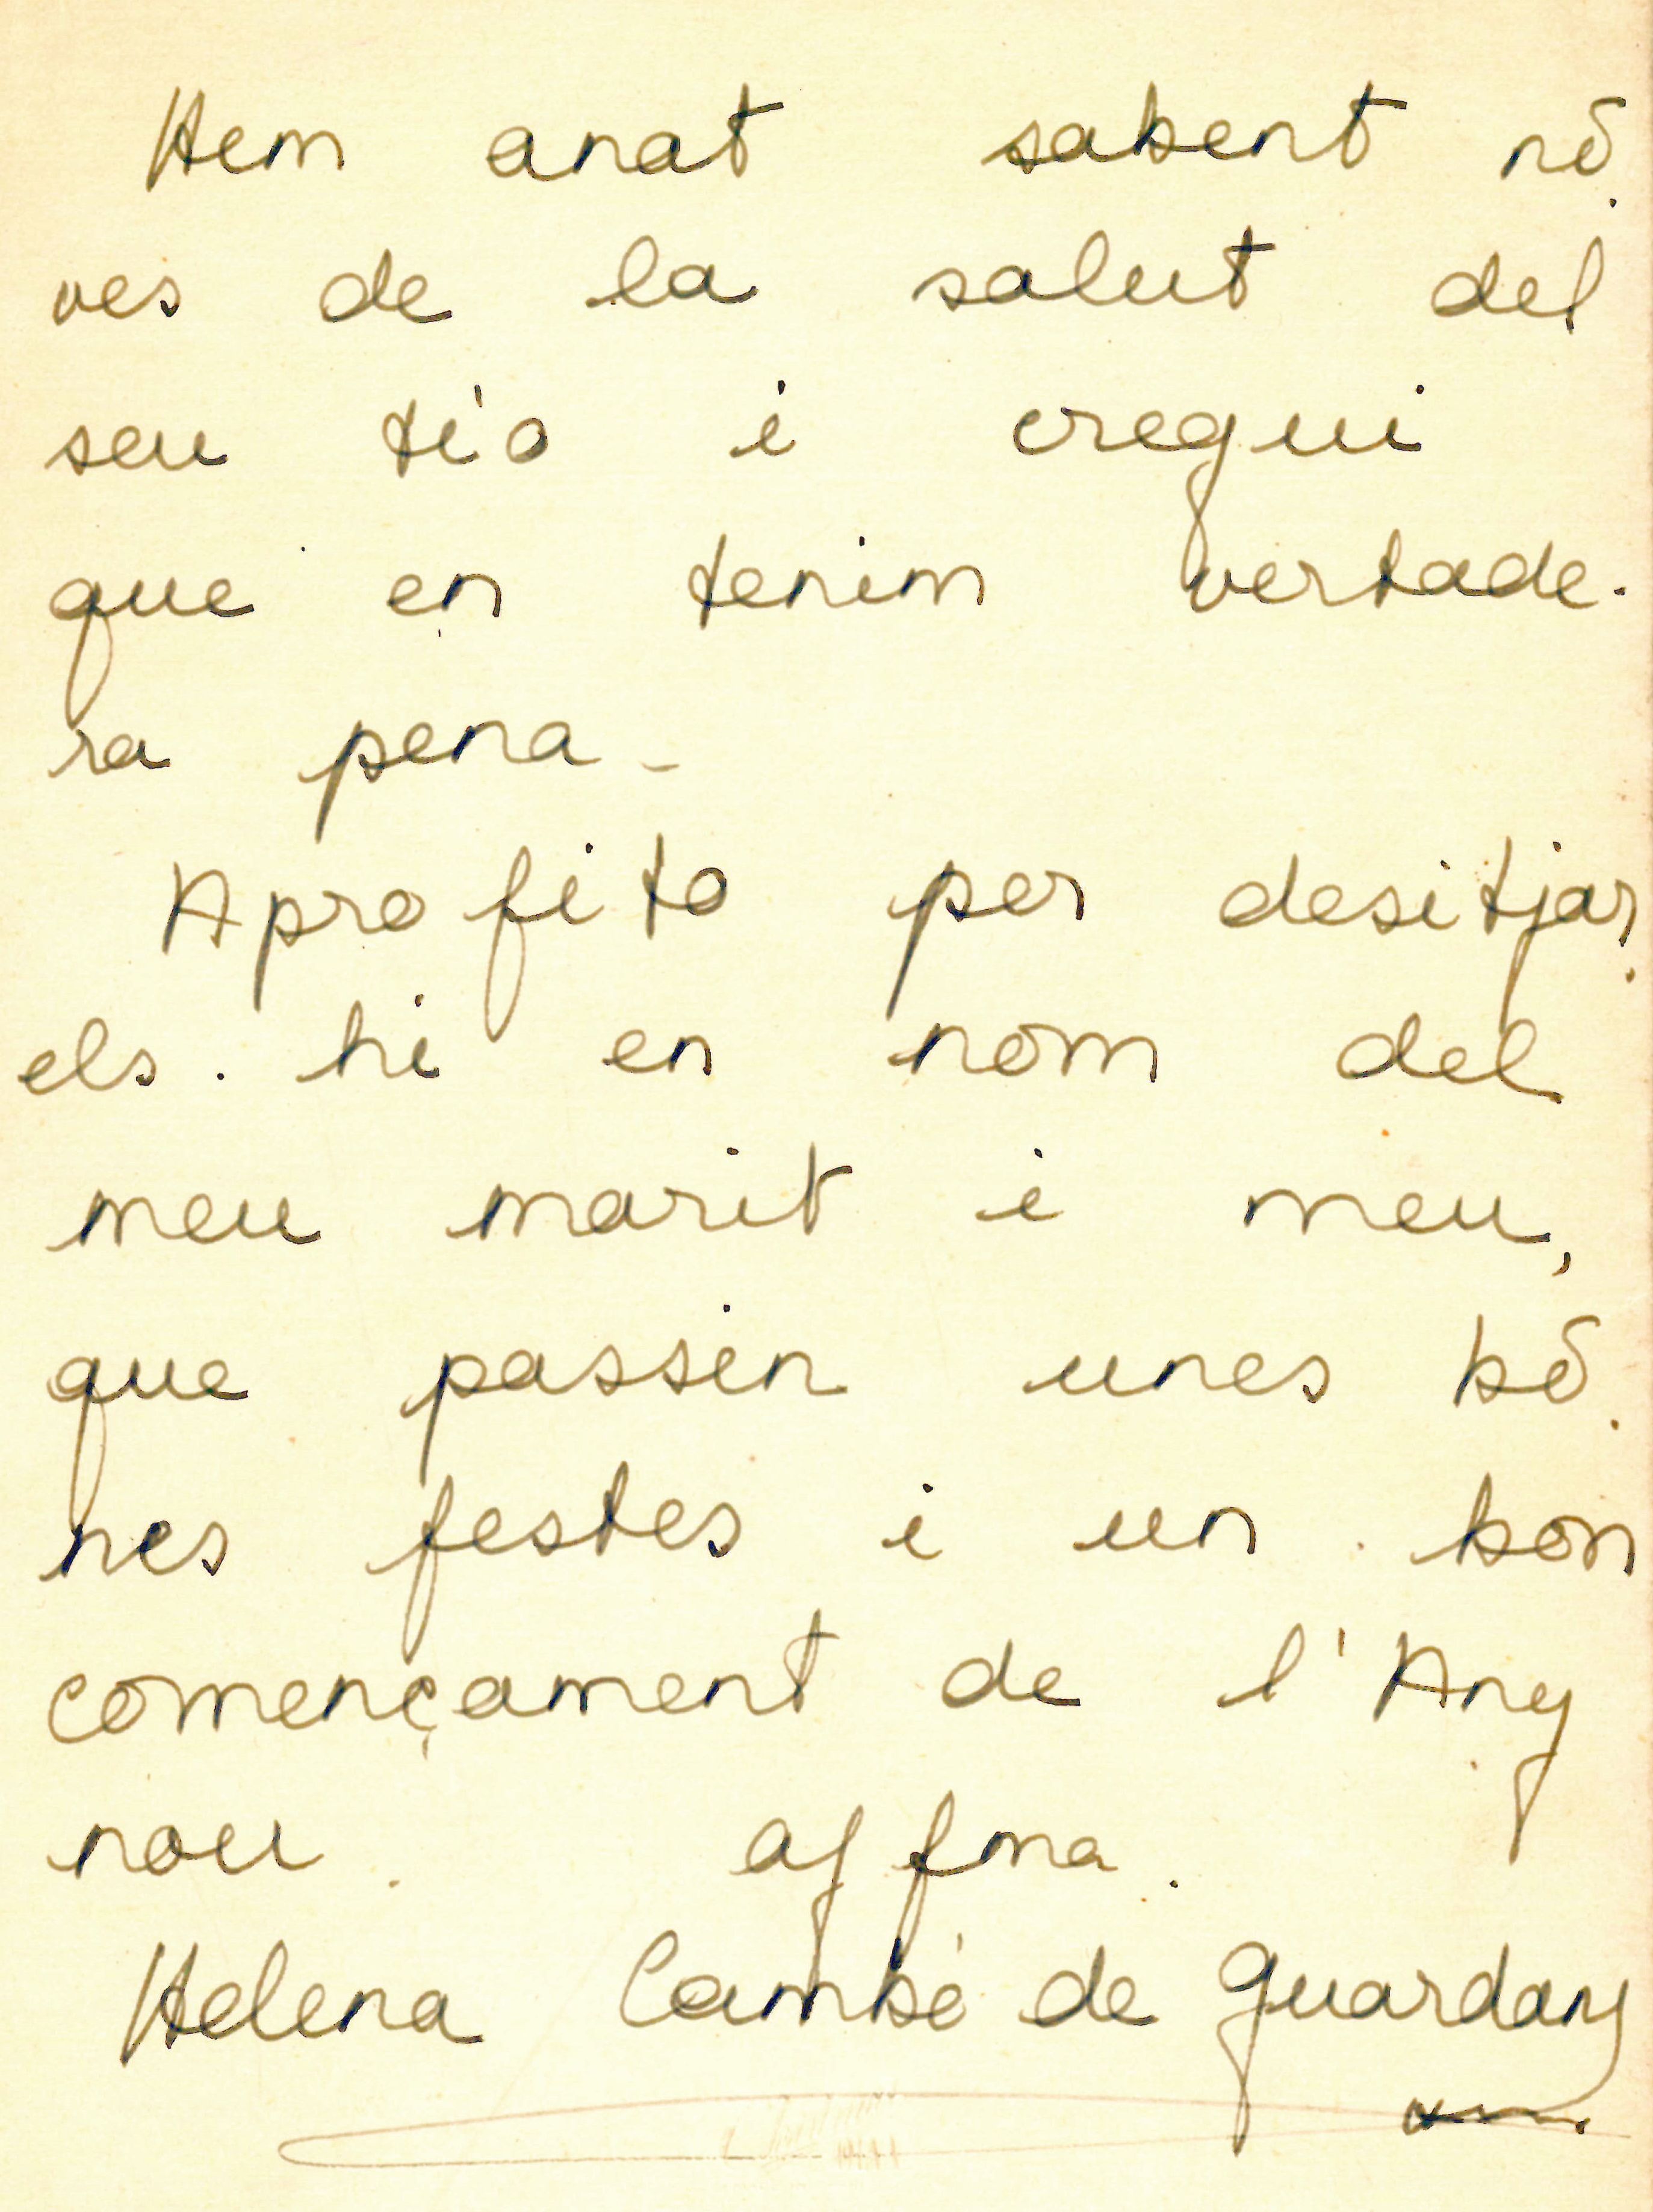 Hem anat sabent nò.
ves de la salut del
seu tio i cregui
que en tenim vertade.
ra pena.
Aprofito per desitjar.
els.hi en nom del
meu marit i meu,
que passin unes bò.
nes festes i un bon
començament de l'Any
nou. affma.
Helena Cambó de Guardans